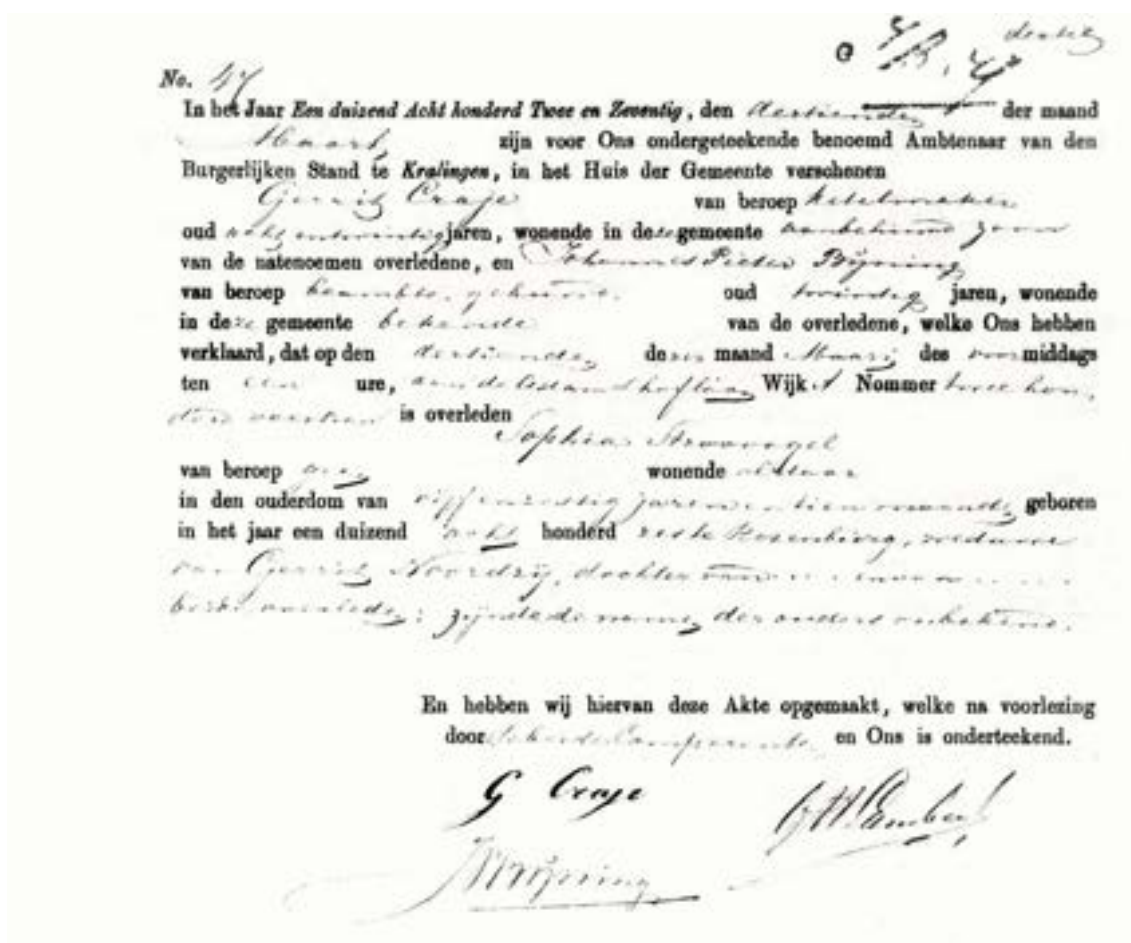 No. 47
In het Jaar Een duizend Acht honderd Twee en Zeventig, den dertiende der maand
Maart zijn voor Ons ondergeteekende benoemd Ambtenaar van den
Burgerlijken Stand te Kralingen, in het Huis der Gemeente verschenen
Gerrit Craje van beroep ketelmaker
oud acht en twintig jaren, wonende in deze gemeente aanbehuwd zoon
van de natenoemen overledene, en Johannes Pieter Bijning
van beroep beambte, oud twintig jaren, wonende
in deze gemeente bekende van de overledene, welke Ons hebben
verklaard, dat op den dertiende dezer maand Maart des voormiddags
ten een ure, aan de Wijk A Nommer twee hon,
derd veertien is overleden
Sophia
van beroep geen wonende aldaar
in den ouderdom van vijf en zestig jaren en tien maanden geboren
in het jaar een duizend acht honderd zes te Rosenburg, weduwe
van Gerrit Noordzij, dochter van
beide overleden: zijnde de namen der ouders onbekend.
En hebben wij hiervan deze Akte opgemaakt, welke na voorlezing
door de Comparanten en Ons is onderteekend.
G Craje
JPBijning